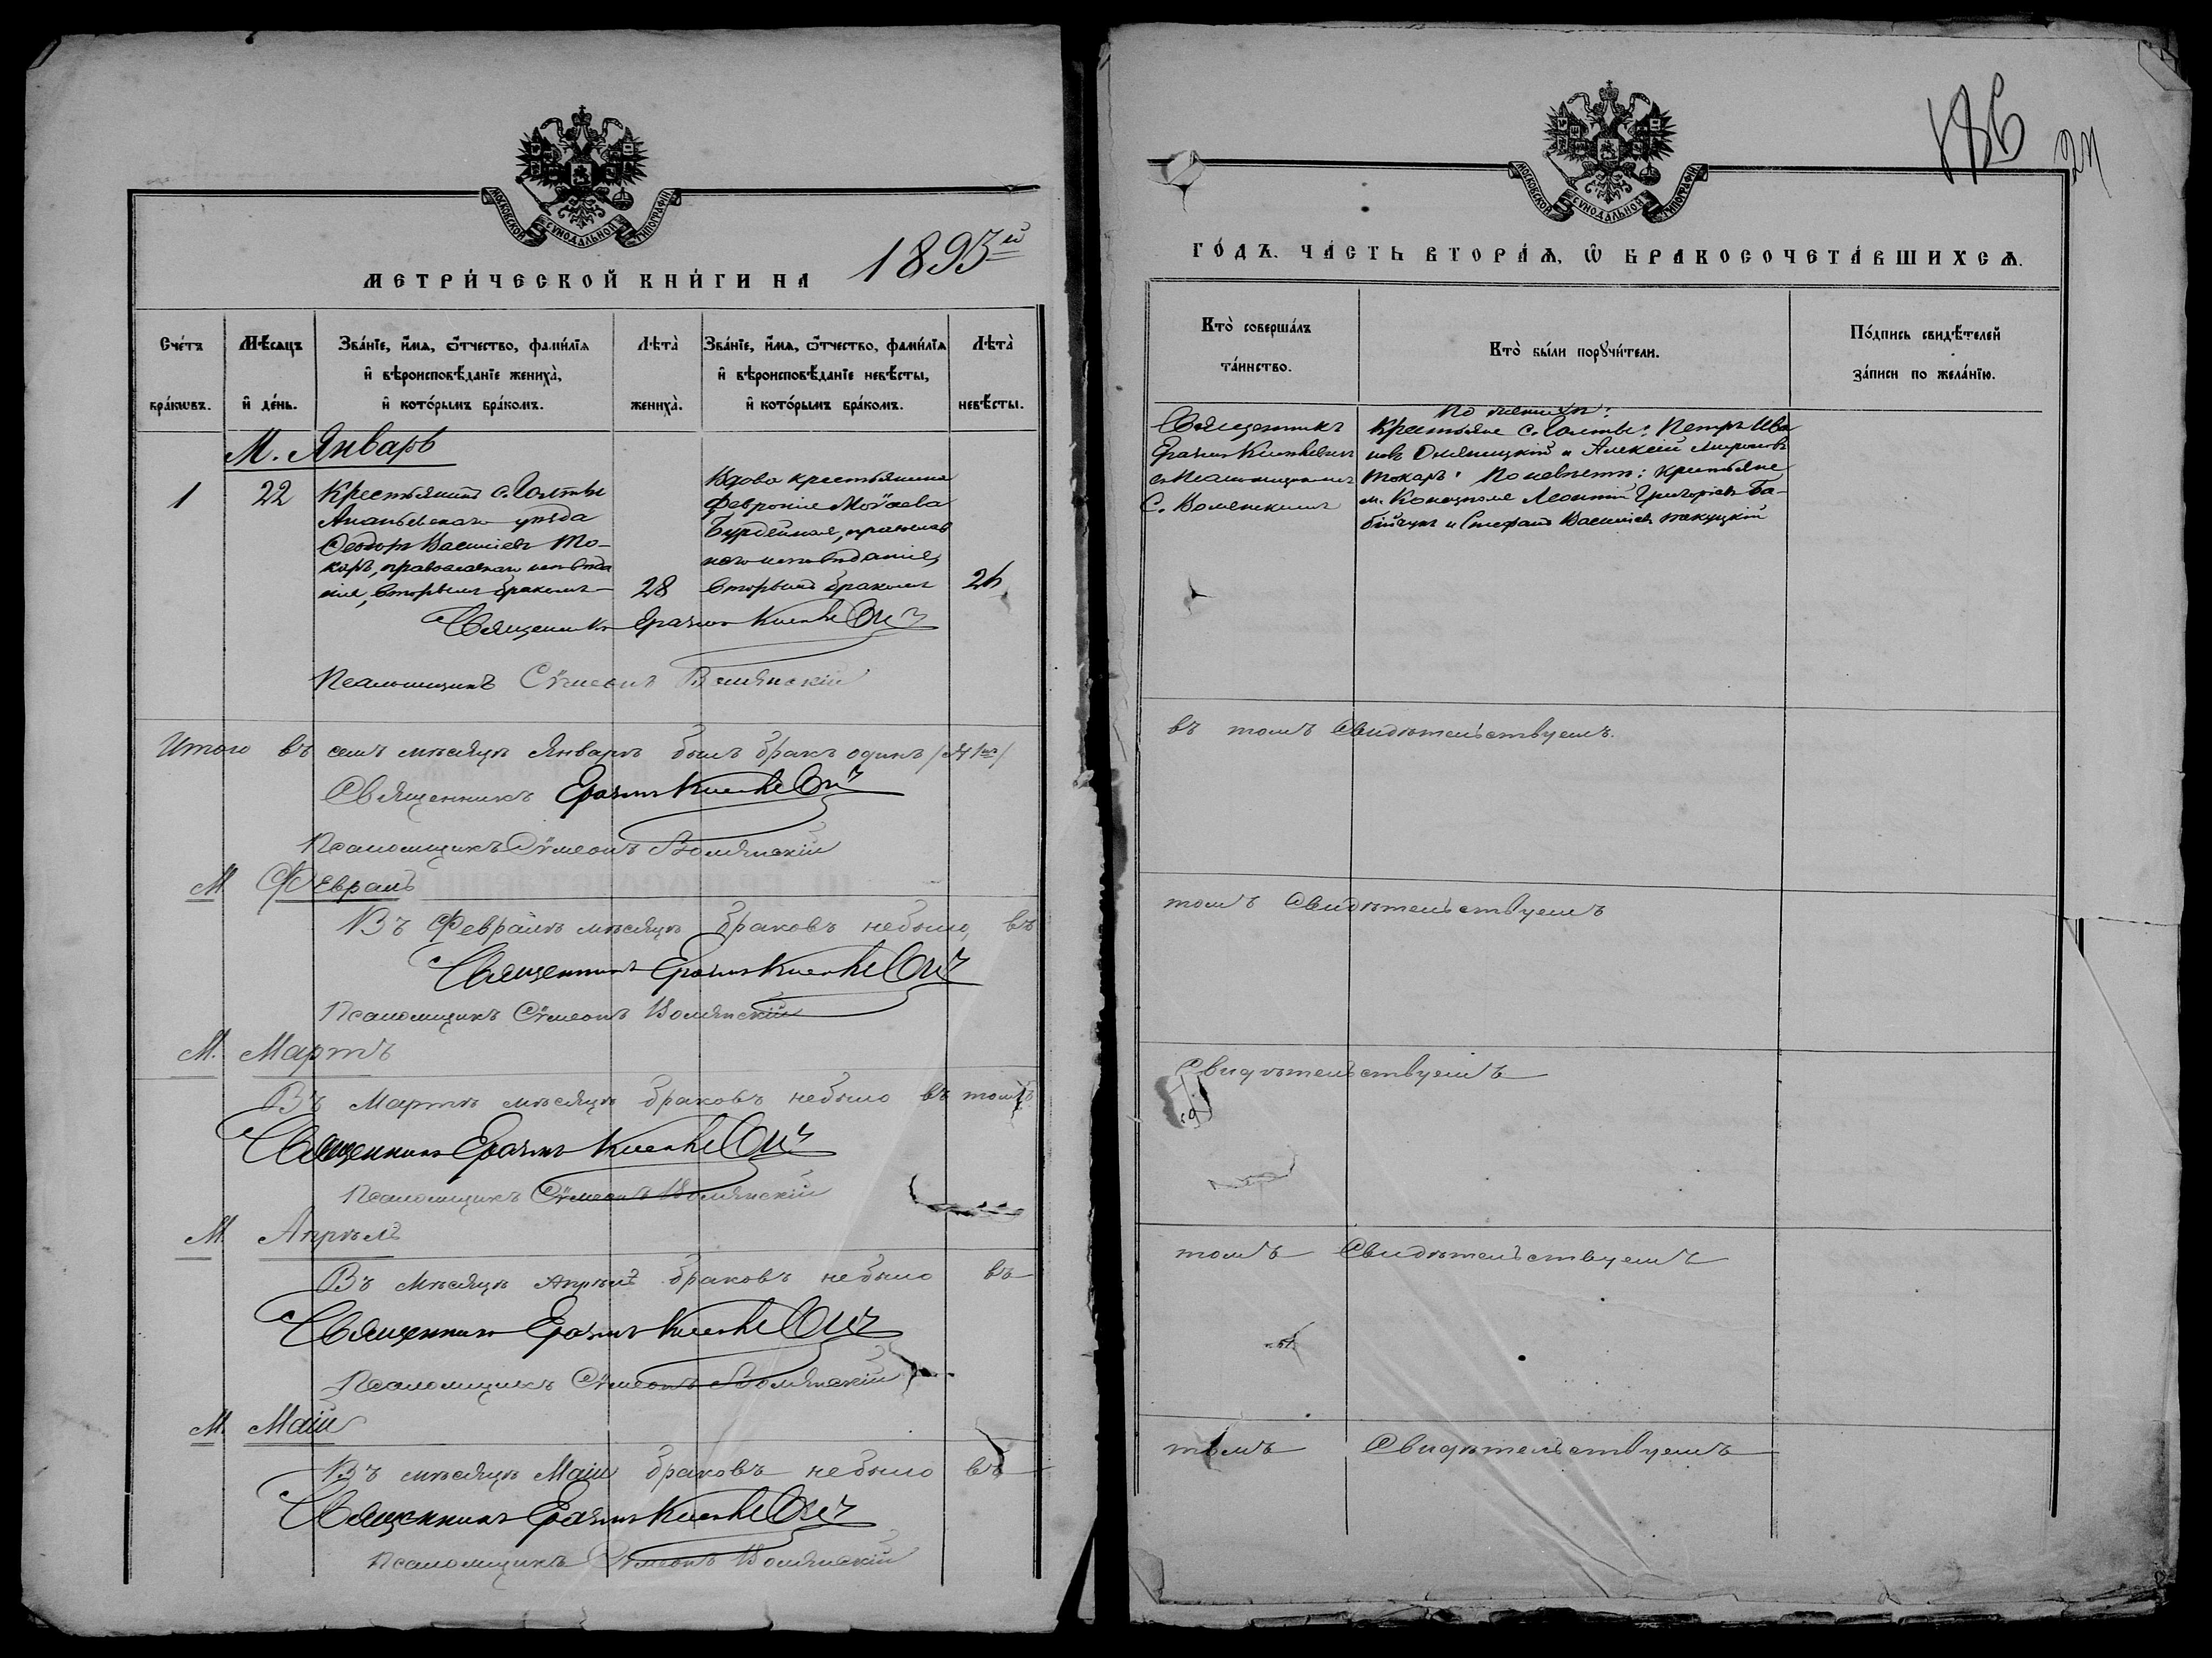 МОСКОВСКОЙ СѴНОДАЛЬНОЙ ТИПОГРАФІИ
МЕТРИ́ЧЕСКОЙ КНИ́ГИ НА 1893й
Сче́тъ бра́кωвъ.
Мѣ́сяцъ и҆ де́нь.
Зва́нїе, и҆́мя, ѻ҆́тчество, фами́лїя и҆ вѣроисповѣ́данїе жениха̀, и҆ кото́рымъ бра́комъ.
Лѣта̀ жениха̀.
Зва́нїе, и҆́мя, ѻ҆́тчество, фами́лїя и҆ вѣроисповѣ́данїе невѣ́сты, и҆ кото́рымъ бра́комъ.
Лѣта̀ невѣ́сты.
М. Январь
1
22
Крестьянинъ с. Голты
Ананьевскаго уѣзда
Ѳеодоръ Василіевъ То-
каръ, православнаго исповѣда
нія, вторымъ бракомъ
28
Вдова крестьянина
Февронія
православ
наго исповѣданія,
вторымъ бракомъ
26
Священникъ Еразмъ
Псаломщикъ Сѵмеонъ Волянскій
Итого въ семъ мѣсяцѣ Январѣ былъ бракъ одинъ /№ 1й/
Священникъ Еразмъ
Псаломщикъ Сѵмеонъ Волянскій
М. Февраль
Въ Февралѣ мѣсяцѣ браковъ небыло, въ
Священникъ Еразмъ
Псаломщикъ Сѵмеонъ Волянскій
М. Мартъ
Въ Мартѣ мѣсяцѣ браковъ небыло въ томъ
Священникъ Еразмъ
Псаломщикъ Сѵмеонъ Волянскій
М. Апрѣль
Въ мѣсяцѣ Апрѣлѣ браковъ небыло въ
Священникъ Еразмъ
Псаломщикъ Сѵмеонъ Волянскій
М. Маій
Въ мѣсяцѣ Маіи браковъ небыло въ
Священникъ Еразмъ
Псаломщикъ Сѵмеонъ Волянскій
186
МОСКОВСКОЙ СѴНОДАЛЬНОЙ ТИПОГРАФІИ
ГО́ДЪ. ЧА́СТЬ ВТОРА́Я, Ѽ БРАКОСОЧЕТА́ВШИХСЯ.
Кто̀ соверша́лъ та́инство.
Кто̀ бы́ли порꙋчи́тели.
По́дпись свидѣ́телей за́писи по жела́нїю.
Священникъ
Еразмъ
съ Псаломщикомъ
С. Волянскимъ
По женихѣ:
Крестьяне с. Голты: Петръ Ива
новъ и Алексій Мироновъ
Токаръ. По невѣстѣ: крестьяне
м. Леонтій Григоріевъ Ба-
бійчукъ и Стефанъ Василіевъ
въ томъ свидѣтельствуемъ.
томъ свидѣтельствуемъ
свидѣтельствуемъ
томъ свидѣтельствуемъ
томъ свидѣтельствуемъ